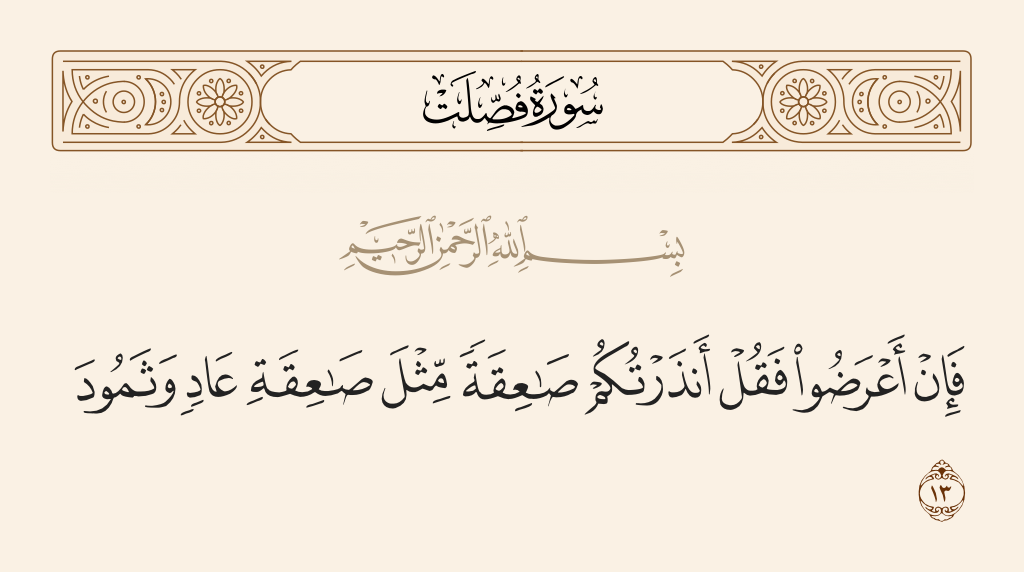 سُورَةُ فُصِّلَتْ
بِسْمِ ٱللَّهِ ٱلرَّحْمَٰنِ ٱلرَّحِيمِ
فَإِنْ أَعْرَضُوا۟ فَقُلْ أَنذَرْتُكُمْ صَـٰعِقَةً مِّثْلَ صَـٰعِقَةِ عَادٍ وَثَمُودَ
١٣